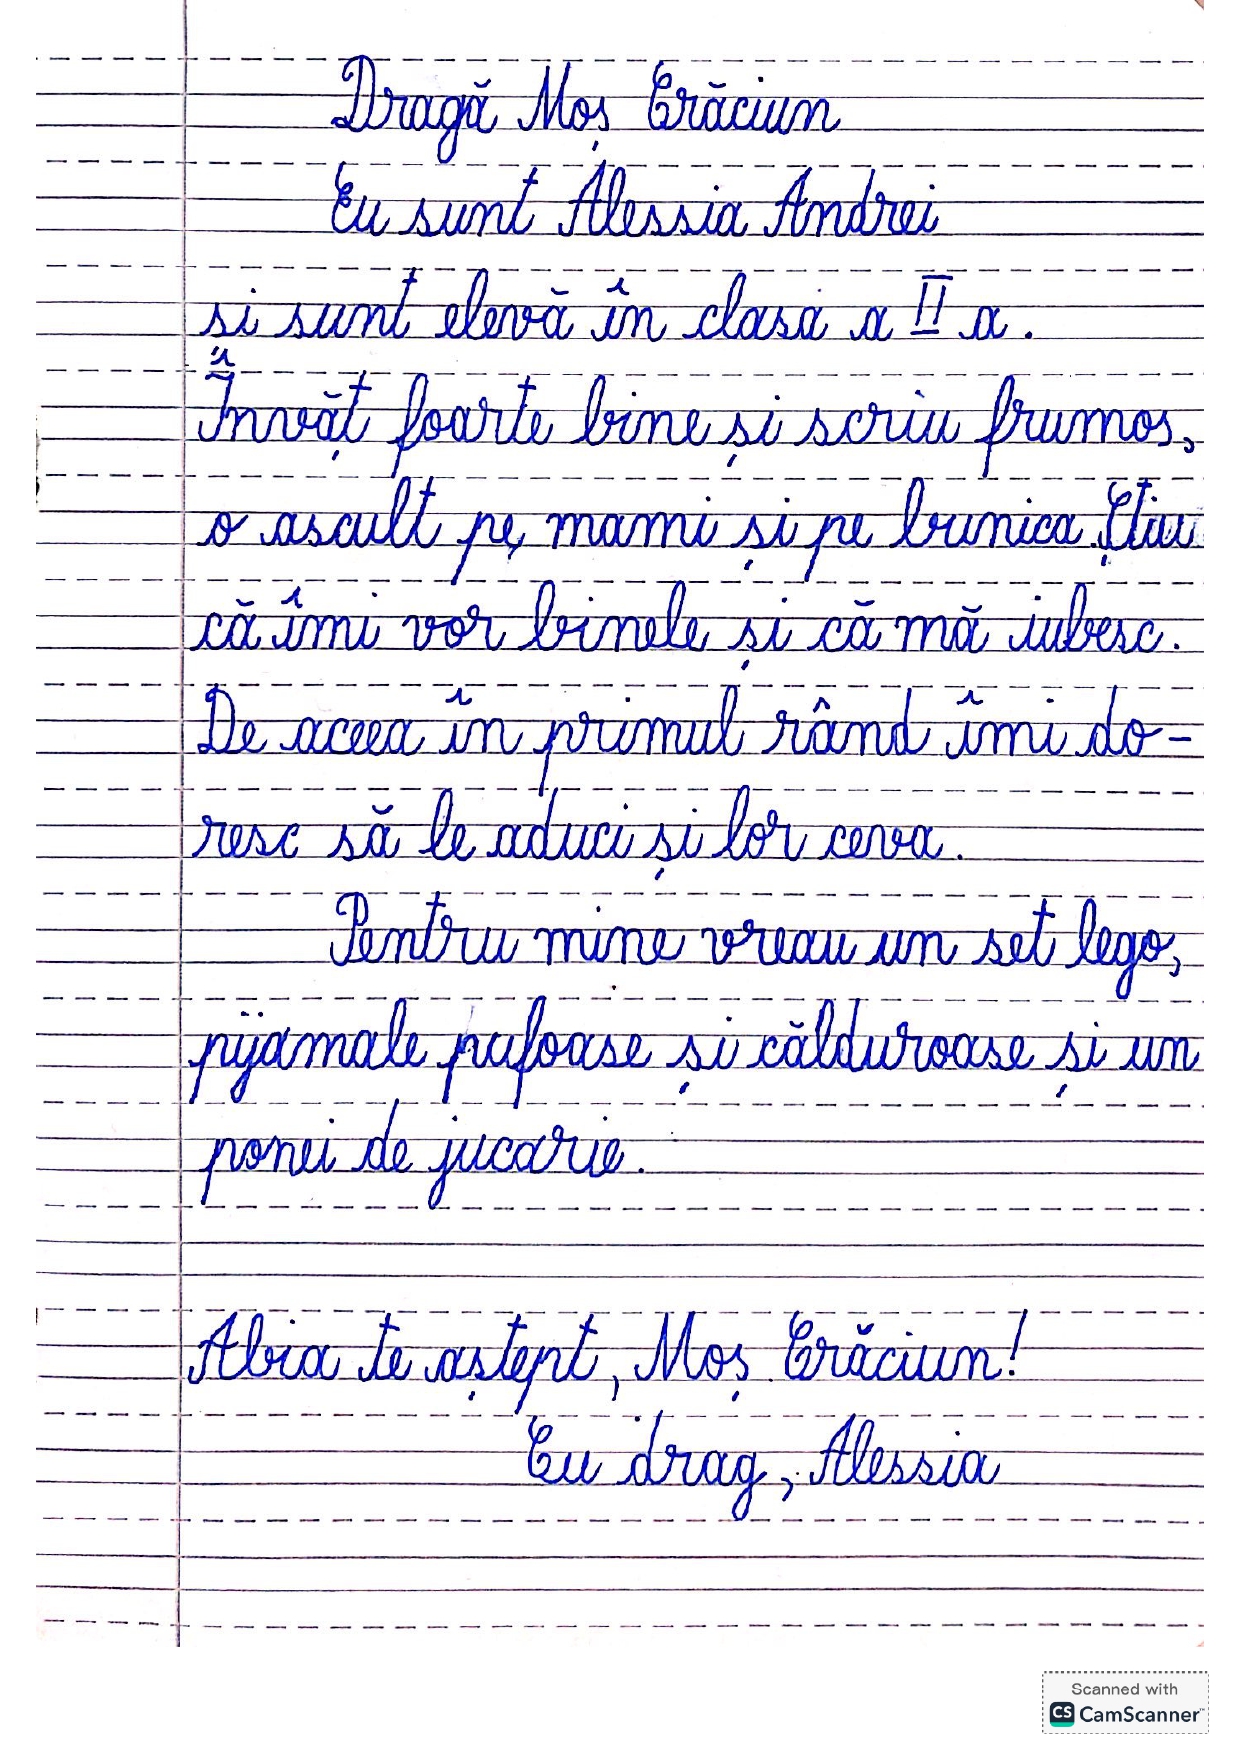 Dragă Moș Crăciun
Eu sunt Alessia Andrei
si sunt elevă în clasa a II a.
Învăț foarte bine și scriu frumos,
o ascult pe mami și pe bunica. Știu
că îmi vor binele și că mă iubesc.
De aceea în primul rând îmi do-
resc să le aduci și lor ceva.
Pentru mine vreau un set lego,
pijamale pufoase și călduroase și un
ponei de jucarie.
Abia te aștept, Moș Crăciun!
Cu drag, Alessia
Scanned with
CS CamScanner